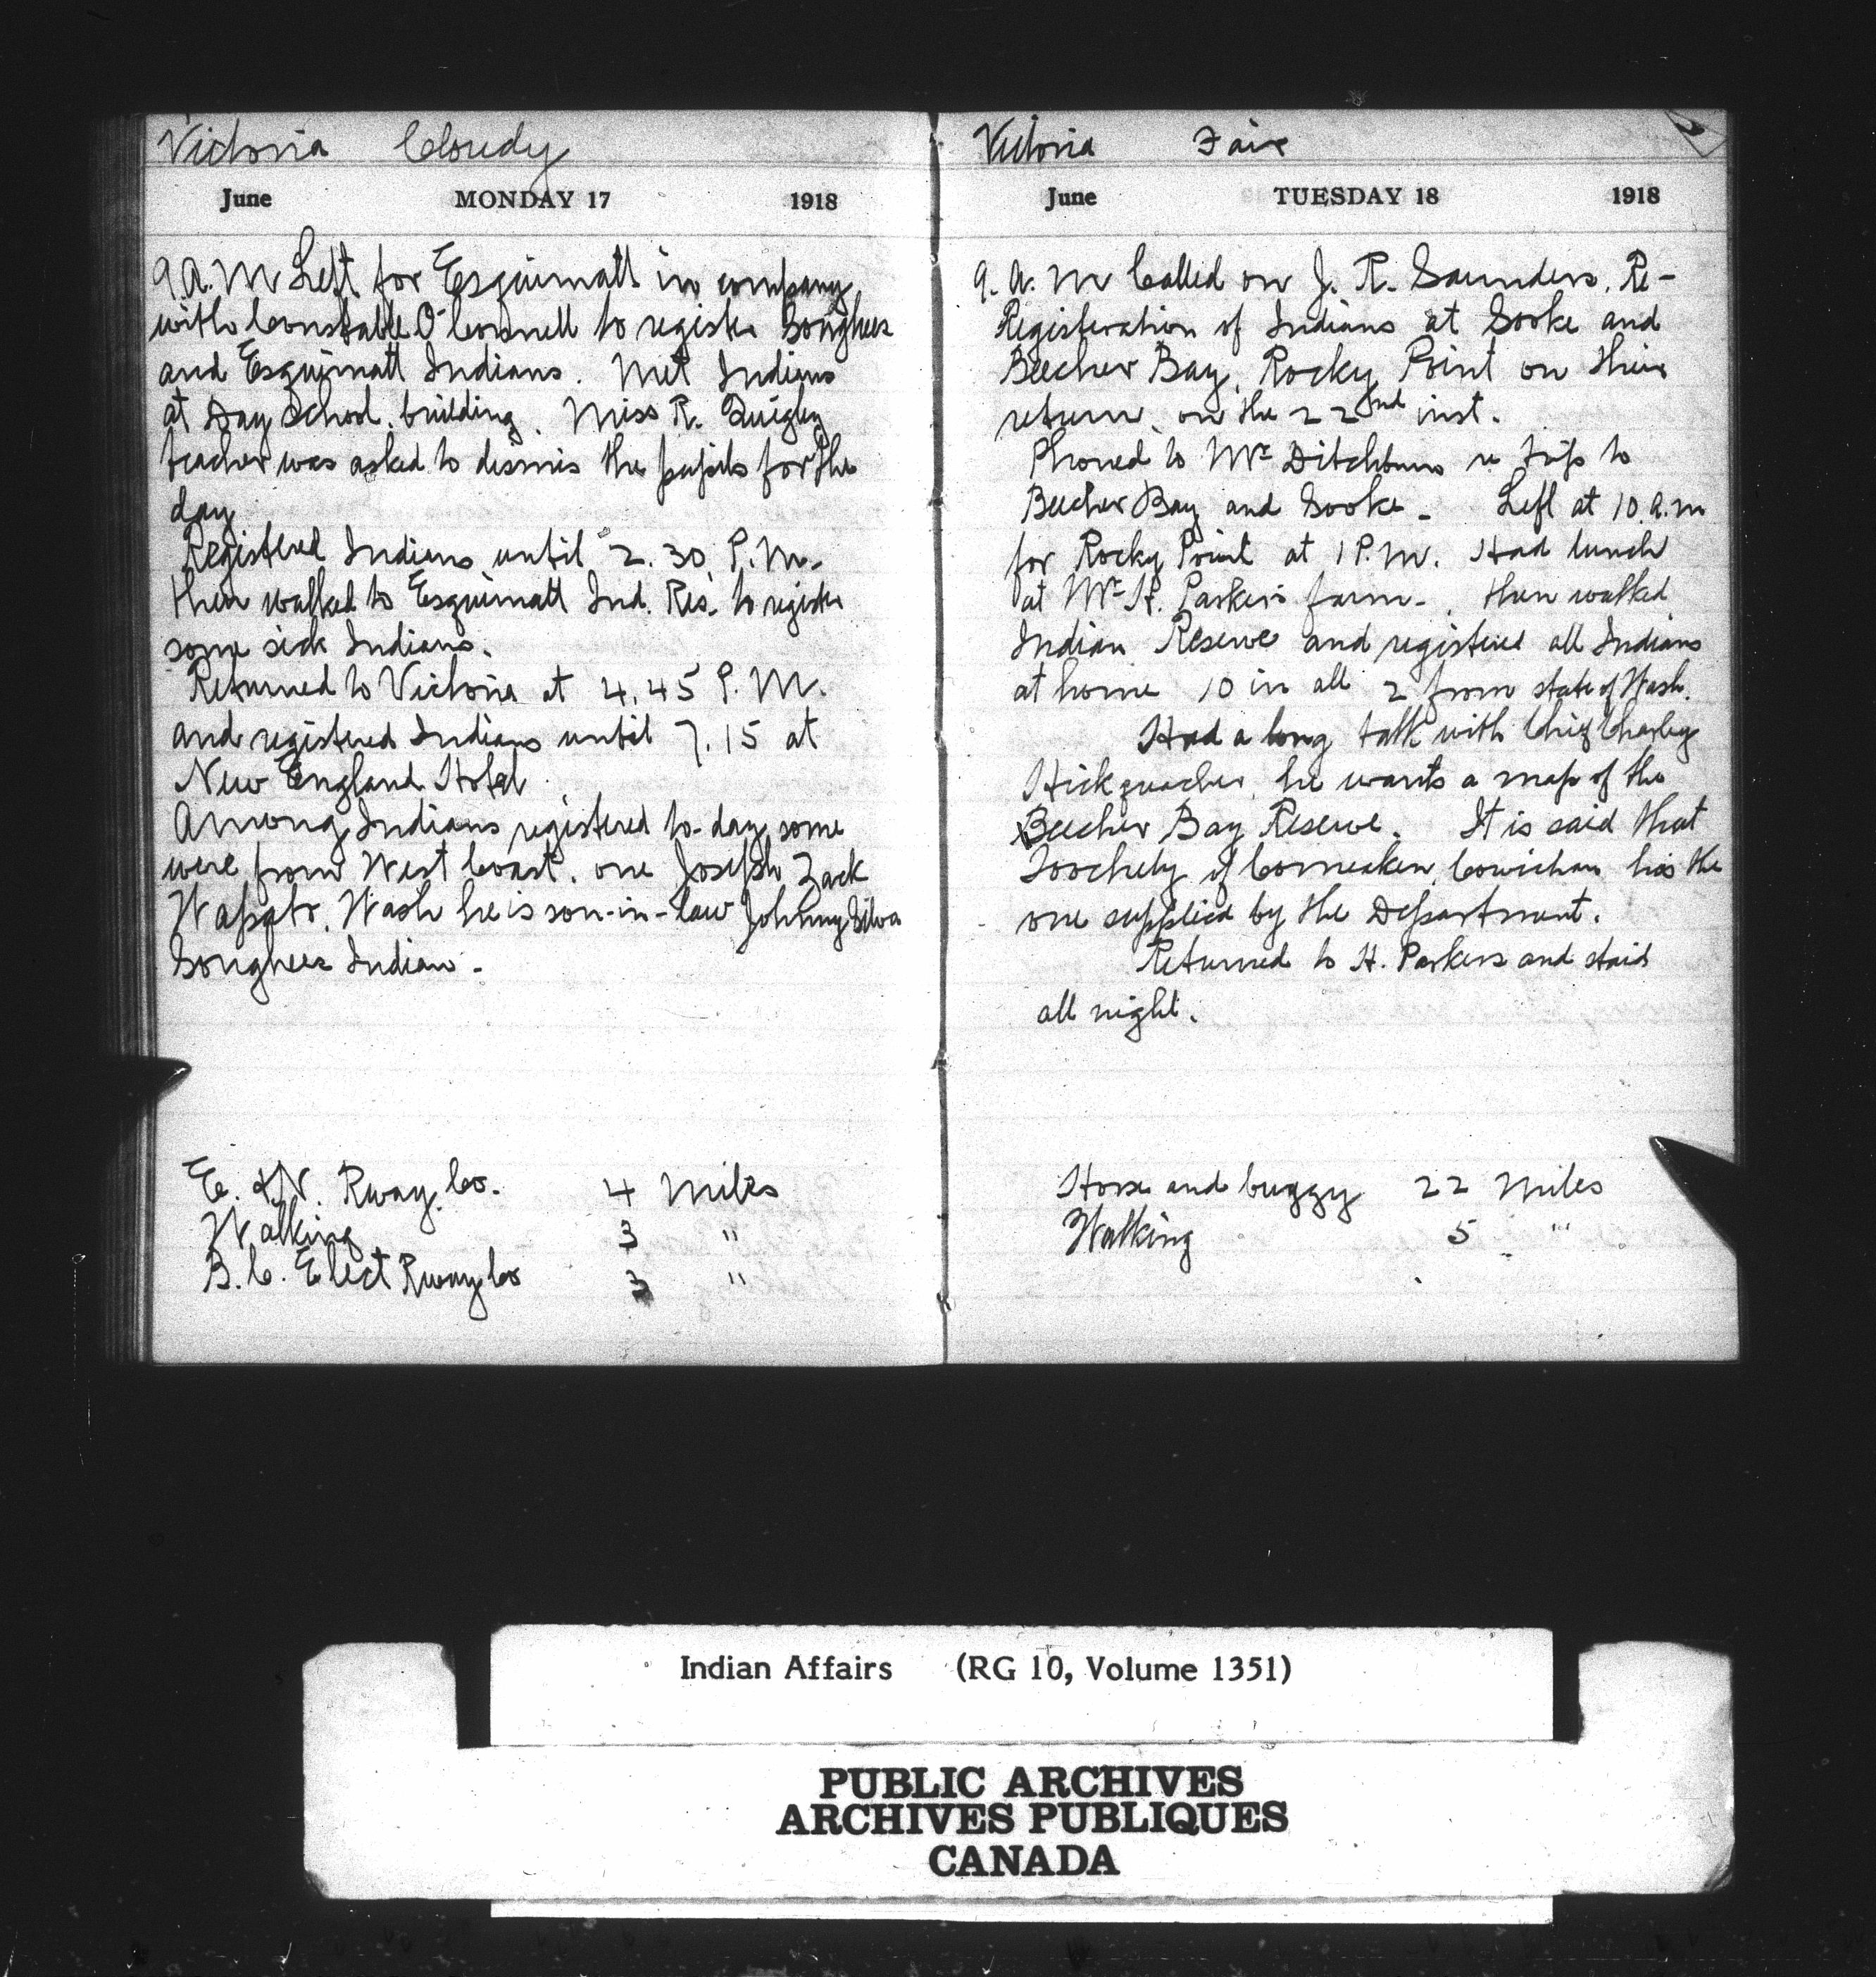 Victoria Cloudy
June MONDAY 17 1918
9 A.M Left for Esquimalt in company
with Constable O'Connell to register Songhees
and Esquimalt Indians. Met Indians
at Day School building. Miss R. Quigley
teacher was asked to dismis the pupils for the
day
Registered Indians until 2.30 P.M.
then walked to Esquimalt Ind. Res. to register
some sick Indians.
Returned to Victoria at 4.45 P.M.
and registered Indians until 7.15 at
New England Hotel
Among Indians registered to-day some
were from West Coast. one Joseph Zack
Wapato, Wash he is son-in-law Johnny Silva
Songhees Indian.
E. & N. Rway. Co. 4 Miles
Walking 3 "
B.C. Elect Rway Co 3 "
Victoria Fair
June TUESDAY 18 1918
9. A. M Called on J. R. Saunders. Re-
Registeration of Indians at Sooke and
Beecher Bay, Rocky Point on their
return on the 22nd inst.
Phoned to Mr Ditchburn re trip to
Beecher Bay and Sooke - Left at 10 a.m
for Rocky Point at 1 P.M. Had lunch
at Mr H. Parkers farm. then walked
Indian Reserve and registered all Indians
at home 10 in all 2 from state of Wash.
Had a long talk with Chief Charley
he wants a map of the
Beecher Bay Reserve. It is said that
of Comeaken, Cowichan has the
one supplied by the Department.
Returned to H. Parkers and staid
all night.
Horse and buggy 22 Miles
Walking 5 "
Indian Affairs (RG 10, Volume 1351)
PUBLIC ARCHIVES
ARCHIVES PUBLIQUES
CANADA